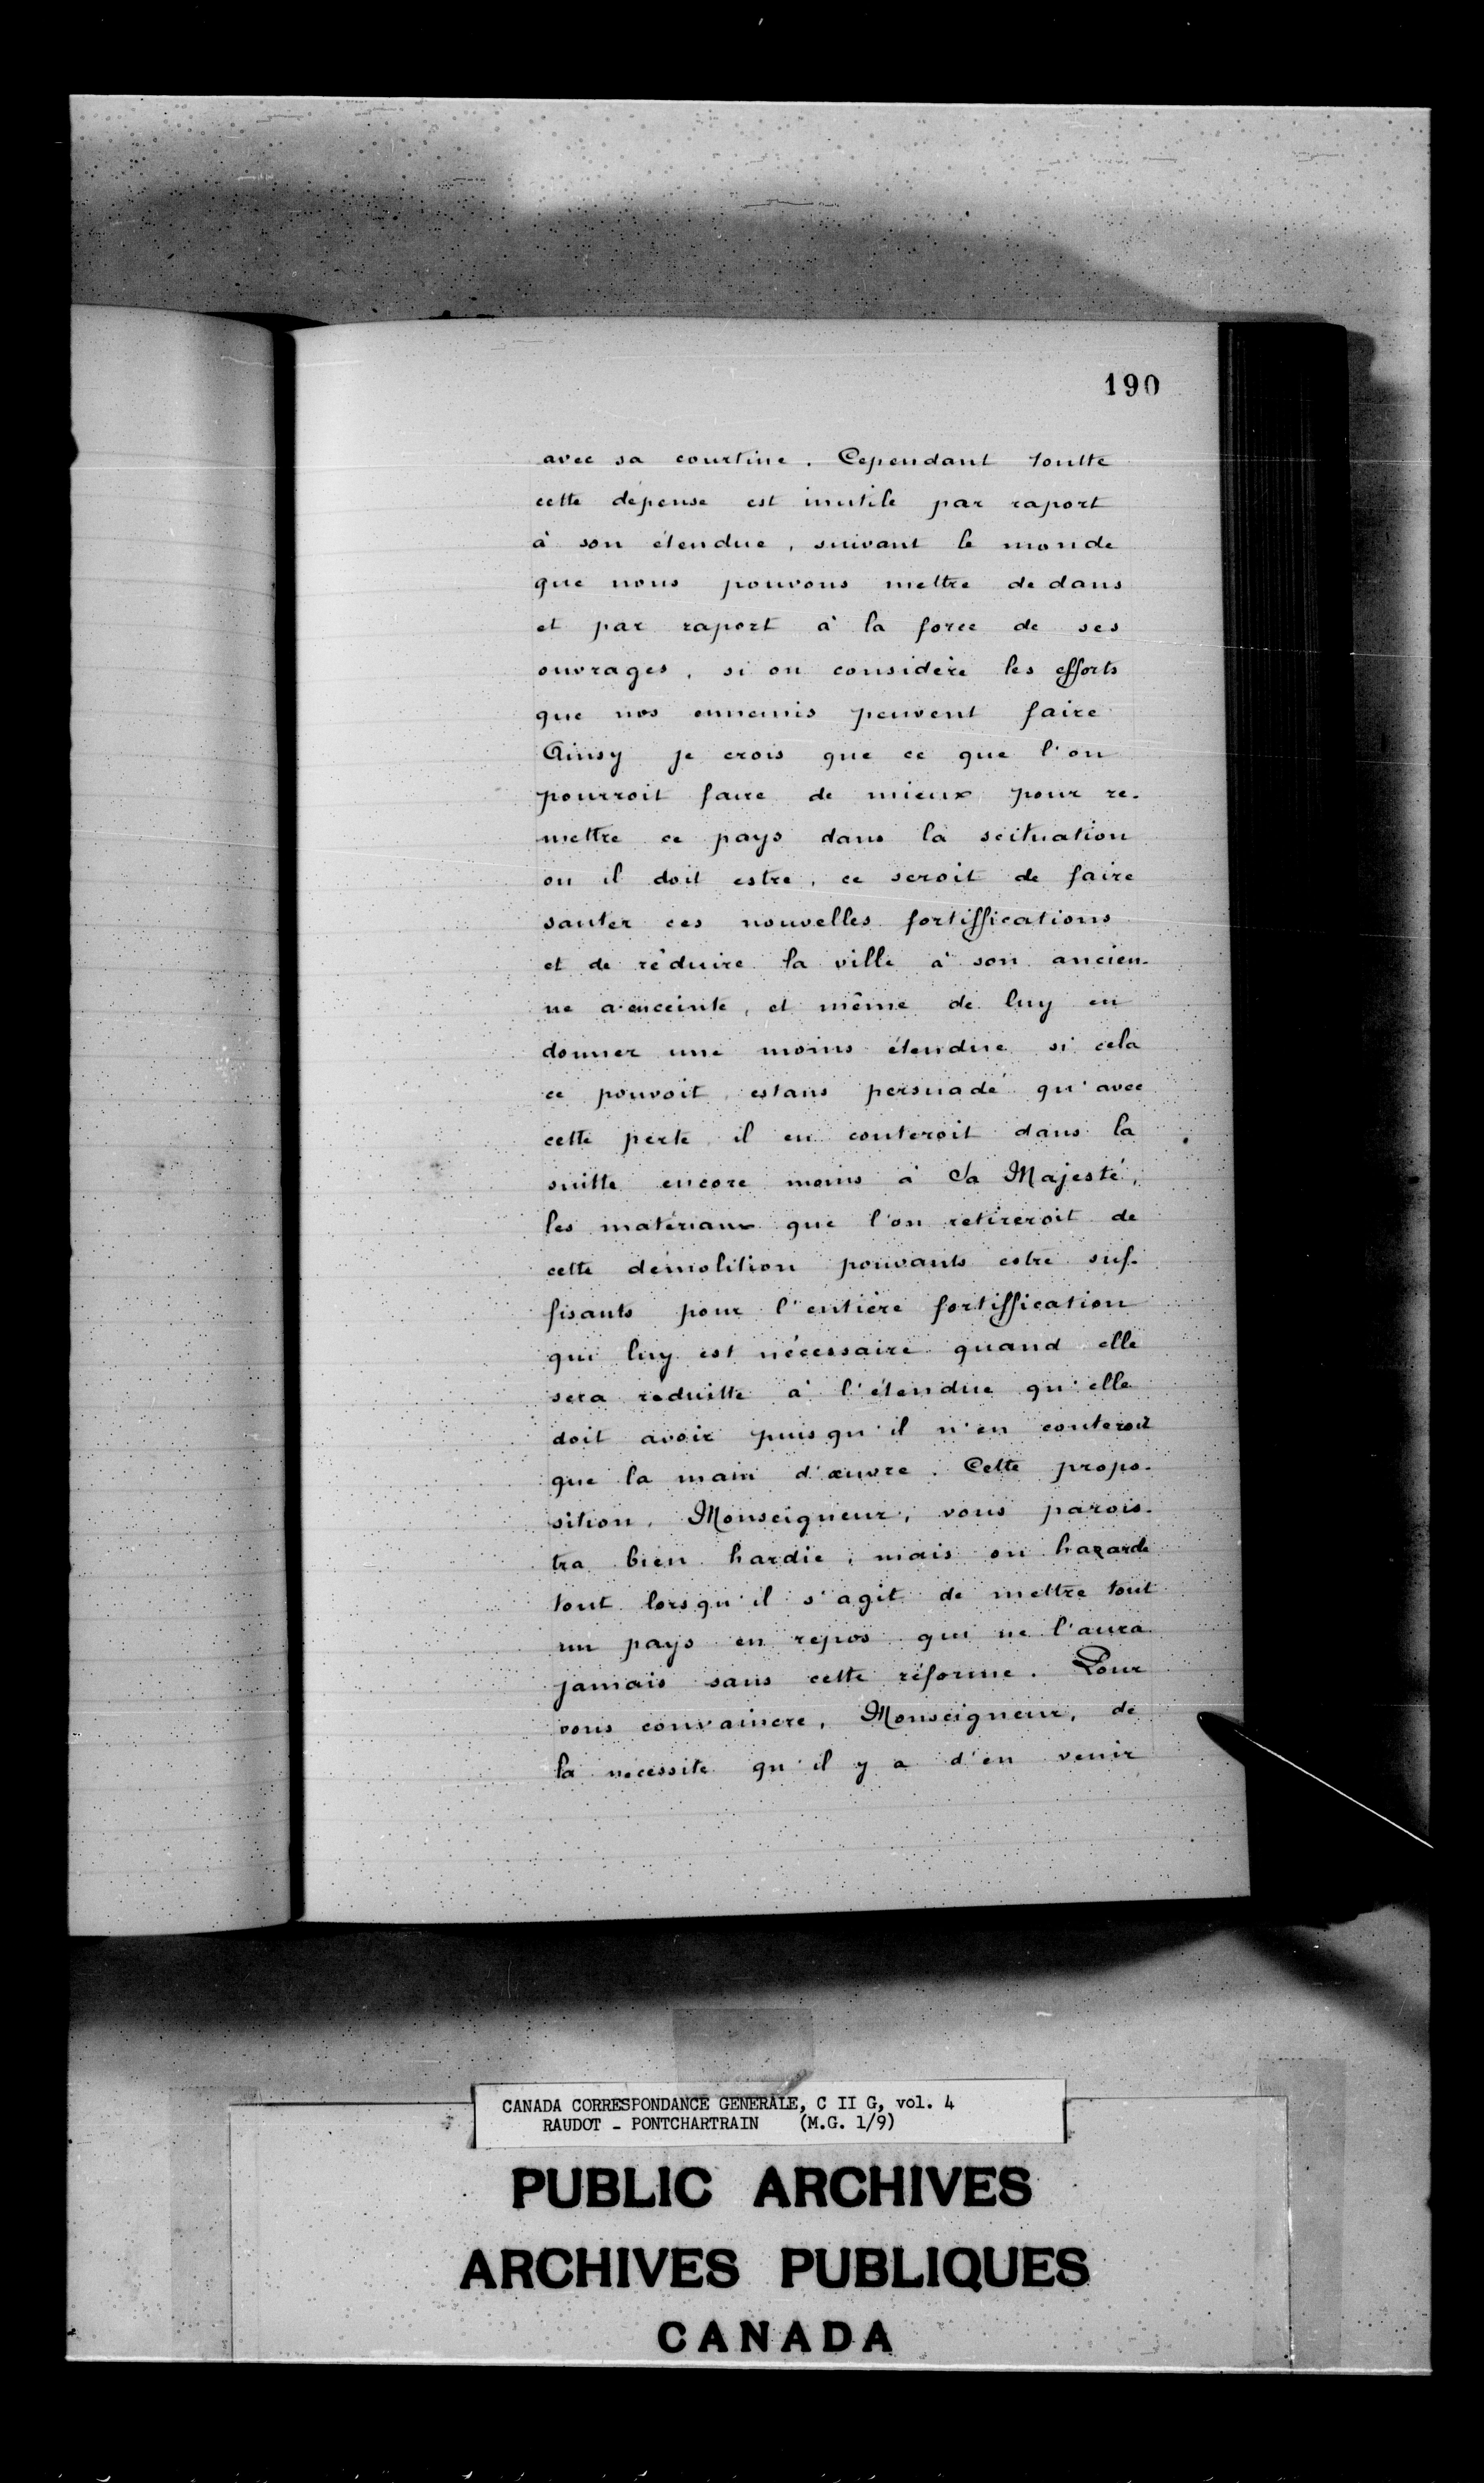 190
avec sa courtine. Cependant toutte
cette dépense est inutile par raport
à son étendue, suivant le monde
que nous pouvons mettre dedans
et par raport à la force de ses
ouvrages, si on considère les efforts
que nos ennemis peuvent faire
Ainsy je crois que ce que l'on
pourroit faire de mieux pour re-
mettre ce pays dans la scituation
ou il doit estre, ce seroit de faire
sauter ces nouvelles fortiffications
et de réduire la ville à son ancien-
ne a enceinte, et même de luy en
donner une moins étendue si cela
ce pouvoit, estans persuadé qu'avec
cette perte il en couteroit dans la
suitte encore moins à Sa Majesté,
les matériaux que l'on retireroit de
cette démolition pouvants estre suf-
fisants pour l'entière fortiffication
qui luy est nécessaire quand elle
sera réduitte à l'étendue qu'elle
doit avoir puisqu'il n'en couteroit
que la main d'œuvre. Cette propo-
sition, Monseigneur, vous parois-
tra bien hardie, mais on hazarde
tout lorsqu'il s'agit de mettre tout
un pays en repos qui ne l'aura
jamais sans cette réforme. Pour
vous convaincre, Monseigneur, de
la nécessité qu'il y a d'en venir
CANADA CORRESPONDANCE GENERALE, C II G, vol. 4
RAUDOT - PONTCHARTRAIN (M.G. 1/9)
PUBLIC ARCHIVES
ARCHIVES PUBLIQUES
CANADA